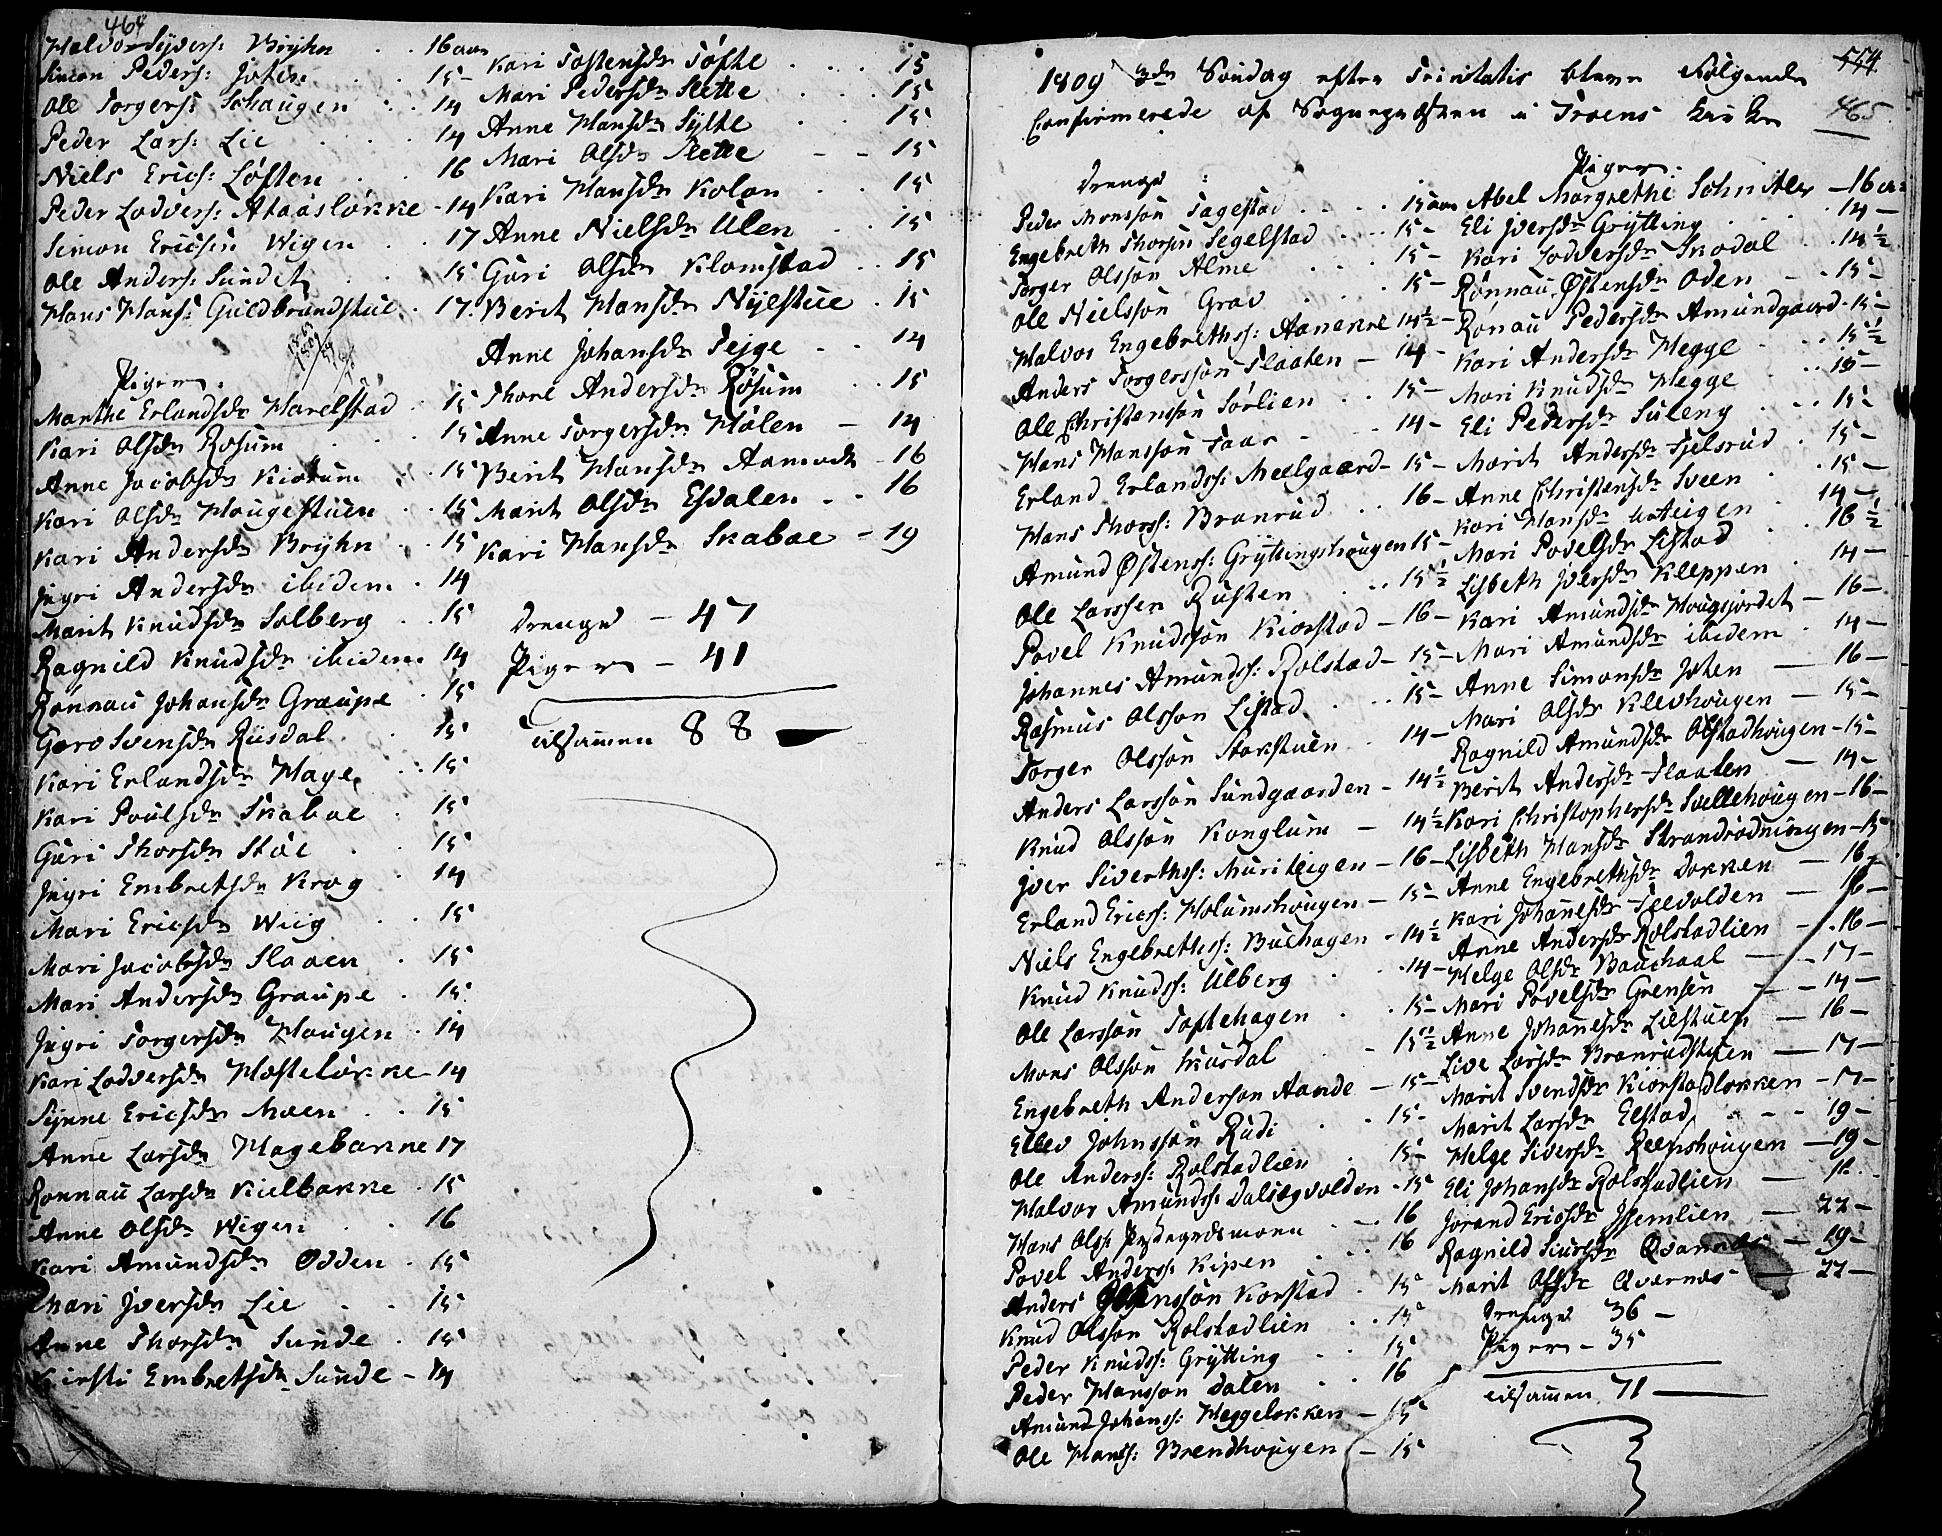 464
Halvor Syvers: Bryhn . . 16 aar
Simon Peders: Joten . . 15 -
Ole Torgers: Schaugen . . 14
Peder Lars: Lie . . . 14
Niels Erics: Løften . . 16
Peder Lodvers: Ataasløkke - 14
Simon Ericsen Wigen . . 17
Ole Anders: Sundet . . 15
Hans Hans: Guldbrandstue . 17.
Piger.
Marthe Erlandsdr Harelstad . 15
Kari Olsdr Rosum . . . 15
Anne Jacobsdr Kiorum . . 15
Kari Olsdr Haugestuen . . 15
Kari Andersdr Bryhn . . 15
Jngri Andersdr ibidem . 14
Marit Knudsdr Solberg . . 15
Ragnild Knudsdr ibidem. 14
Rønnau Johansdr Graupe . 15
Goro Svensdr Rusdal . . 15
Kari Erlandsdr Hage . . 15
Kari Poulsdr Skaboe . 15
Guri Thorsdr Støe . . 15
Jngri Embretsdr Krog . 14
Mari Ericsdr Wiig . . 15
Mari Jacobsdr Slaaen . 15
Mari Andersdr Graupe . 15
Jngri Torgersdr Haugen . 14
Kari Lodversdr Hosteløkke 14
Synne Ericsdr Moen . . 15
Anne Larsdr Hagebakke 17
Ronnau Larsdr Kielbakke . 15
Anne Olsdr Wigen . . 16
Kari Amundsdr Odden . 15
Mari Jversdr Lie . . 15
Anne Thorsdr Sunde . 15
Kirsti Embretsdr Sunde - 14
Kari Tostensdr Tofte . . . 15
Mari Pedersdr Slette . . . 15
Anne Hansdr Sylte . . 15
Mari Olsdr Slette - - 15
Kari Hansdr Kolon . . 15
Anne Nielsdr Ulen . . 15
Guri Olsdr Klomstad . . 15
Berit Hansdr Nyestue . 15
Anne Johansdr Teige . . 14
Thore Andersdr Røsum . . 15
Anne Torgersdr Holen - 14
Berit Hansdr Aamodt - 16
Marit Olsdr Esdalen . . 16
Kari Hansdr Skaboe - 19
Drenge - 47
Piger - 41
tilsamen 88
554
465
1809 3de Søndag efter Trinitatis bleve Følgende
Confirmerede af Sognepræsten i Froens Kirke
Drenge :
Peder Monssøn Fagestad . . . . 15 aar
Engebreth Thorsen Segelstad . . . 15 -
Torger Olssøn Alme . . . 15 -
Ole Nielssøn Grav . . . 15 -
Halvor Engebrethss: Aanekke 14½ -
Anders Torgerssøn Flaaten - 14 -
Ole Christenssøn Sørlien . . 15 -
Hans Hanssøn Faar - . . 14 -
Erland Erlandss: Meelgaard - 15 -
Hans Thorss: Branrud . . 16 -
Amund Østenss: Gryttingshougen 15 -
Ole Larssen Rusten . . 15½
Povel Knudssøn Kiorstad - 16 -
Johannes Amundss: Rolstad - 15 -
Rasmus Olsson Listad . . . 15 -
Torger Olsson Storstuen . 14 -
Anders Larssøn Sundgaarden - 14½
Knud Olssøn Konglum - 14½
Jver Siverthss: Muriteigen - 16 -
Erland Ericss: Holumshougen - 15 -
Niels Engebrethss: Buehagen - 14½
Knud Knudss: Ulberg . . 14 -
Ole Larssøn Toftehagen . . 15 -
Mons Olssøn Skurdal - 15½
Engebreth Anderson Aande - 15 -
Ellev Johnssøn Rudi . . 15 -
Ole Anderss: Rolstadlien . 15 -
Halvor Amundss: Dalsegvolden - 15
Hans Olss: . - 16
Povel Anderss: Kipen . . . 16
Anders Kørstad . 15
Knud Olsson Rolstadlien . . 15
Peder Knudss: Grytting . . 15
Peder Hanssøn Dalen . . 16
Amund Johanss: Heggeløkken - 15
Ole Hanss: Brendhougen - 15
Piger.
Abel Margrethe Schnitler - 16 aar
Eli Jversdr Grytting . . . 14 -
Kari Joddersdr Skodal . . 14½
Rønnau Østensdr Oden - . 15 -
Rønau Pedersdr Amundgaard . 15 -
Kari Andersdr Hegge . . . 15½
Mari Knudsdr Hegge . . 15 -
Eli Pedersdr Suleng . . . 15 -
Marit Andersdr Fjelsrud . 15 -
Anne Christensdr Sveen . . 15 -
Kari Hansdr Urteigen . 14 -
Mari Povelsdr Listad . . 16½
Lisbeth Jversdr Kleppen . 14 -
Kari Amundsdr Hougsjordet - 16 -
Mari Amundsdr ibidem . 14 -
Anne Simonsdr Joten - 16 -
Mari Olsdr Klevhougen - 15 -
Ragnild Amundsdr Olstadhougen - 15 -
Berit Andersdr Flaaten - 14 -
Kari Christophersdr Svellehougen - 16 -
Lisbeth Hansdr Strandrødningen - 15
Anne Engebrethsdr Dokken - 16 -
Kari Johanesdr Teevolden - 16 -
Anne Andersdr Rolstadlien - 16 -
Helge Olsdr Bauchaal - 17 -
Mari Povelsdr Grensen - - 14 -
Anne Johanesdr Liestuen - 16 -
Live Larsdr Branrudstuen - 17 -
Marit Svendsdr Kiorstadløkken - 17 -
Marit Larsdr Elstad . - - 19 -
Helge Siversdr Reepshougen - 19 -
Eli Johansdr Rolstadlien - 16 .
Jorand Ericsdr Jsemlien - 22 -
Ragnild Qvarnæs - 19 -
Marit Olsdr Qvernæs - 22 -
Drenge 36 -
Piger - 35
tilsamen 71